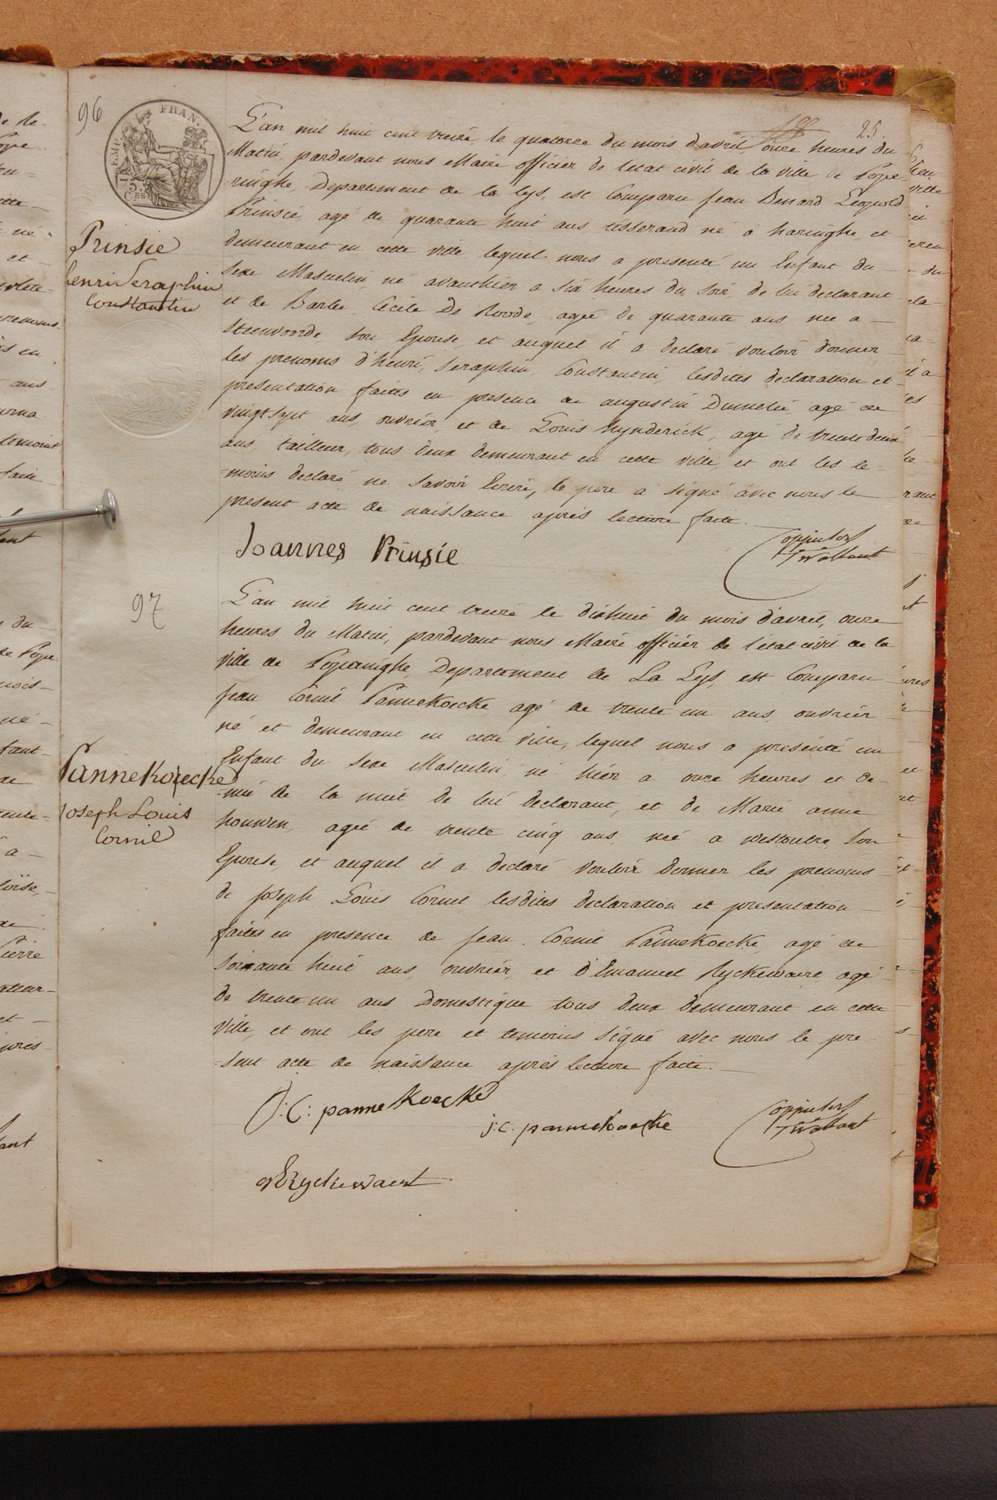 96
25
L'an mil huit cent treize le quatorze du mois d'avril onze heures du
Matin, pardevant nous Maire officier de l'etat civil de la ville de Pope
ringhe, Departement de la Lys, est Comparu Jean Benard Leopold
Prinsie agé de quarante huit ans tisserand né a haringhe et
demeurant en cette ville lequel nous a presenté un Enfant du
sexe Masculin, né avanthier a six heures du soir de lui declarant
et de Barbe Cécile De Roode, agée de quarante ans née a
Steenvoorde son Epouse, et auquel il a declaré vouloir donner
les prenoms d'henri, Seraphin, Constantin, lesdites declaration et
presentation faites en presence de augustin agé de
vingt sept ans, ouvrier et de Louis Rynderick, agé de trente deux
ans, tailleur, tous deux demeurant en cette ville, et ont les te-
-moins declaré ne savoir Ecrire, le pere a signé avec nous le
present acte de naissance après lecture faite.
Prinsie
henri Seraphin
Constantin
Joannes Prinsie
97
L'an mil huit cent treize le dixhuit du mois d'avril, onze
heures du Matin, pardevant nous Maire officier de l'état civil de la
ville de Poperinghe, Departement de La Lys, est Comparu
Jean Cornil Pannekoecke agé de trente un ans, ouvrier
né et demeurant en cette ville, lequel nous a présenté un
Enfant du sexe Masculin né hier a onze heures et de-
-mie de la nuit de lui declarant, et de Marie anne
houwen, agée de trente cinq ans, née a westoutre son
Epouse, et auquel il a declaré vouloir donner les prenoms
de Joseph Louis Cornil lesdites declaration et presentation
faites en presence de Jean Cornil Pannekoecke, agé de
soixante huit ans, ouvrier, et d'Emanuel Ryckewaert agé
de trente un ans Domestique tous deux demeurant en cette
ville, et ont les pere et temoins signé avec nous le pre-
-sent acte de naissance après lecture faite.
Pannekoecke
Joseph Louis
Cornil
J: C: pannekoecke
j: c: pannekoecke
Ryckewaert